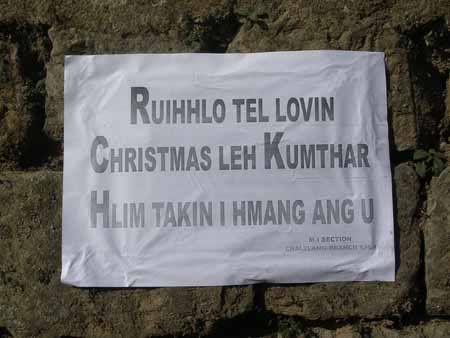 RUIHHLO TEL LOVIN
CHRISTMAS LEH KUMTHAR
HLIM TAKIN I HMANG ANG U
M.I SECTION
CHALTLANG BRANCH